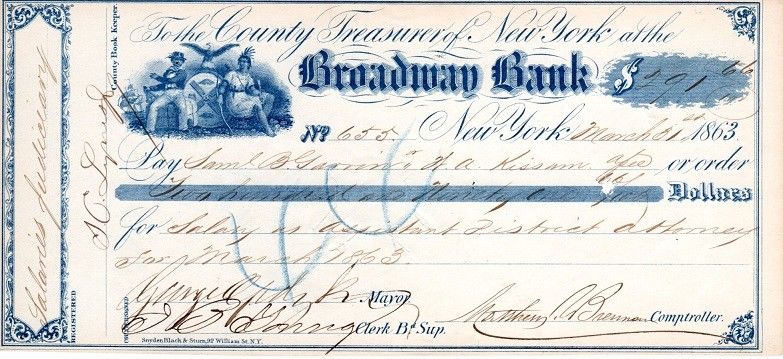 To the County Treasurer of New York, at the
Broadway Bank $291 66
No 655 New York March 31st 1863.
Pay Saml B. Garvin or order
Two hundred and Ninety one 66/100 Dollars
for Salary as Assistant District Attorney
for March 1863.
George Opdyke Mayor
Clerk Bd Sup.
Matthew Brennan Comptroller.
Snyden Black & Sturn, 92 William St. N.Y.
Salaries Judiciary
REGISTERED
County Book Keeper.
COUNTERSIGNED